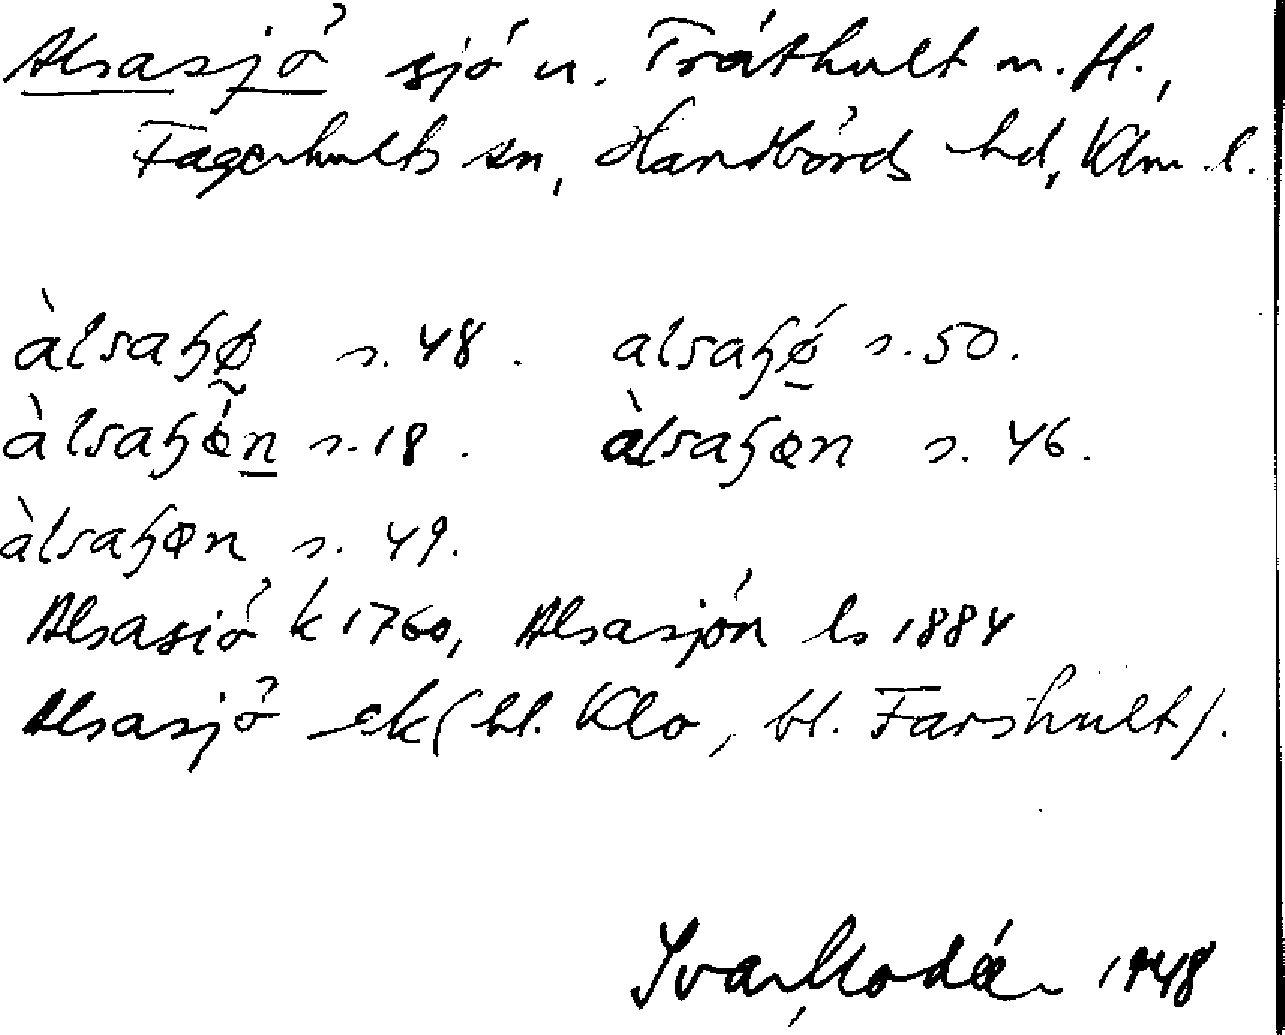 Alsasjö sjö u. Tråthult m. fl.,
Fagerhults sn, Handbörds hd, Klm. l.
àlsaɧø s. 48. alsaɧǿ s. 50.
àlsaɧǿn s. 18. àlsaɧøn s. 46.
àlsaɧøn s. 49.
Alsasiö k 1760, Alsasjön ls 1884
Alsasjö ek (bl. Klo, bl. Farshult).
Ivar Modéer 1948